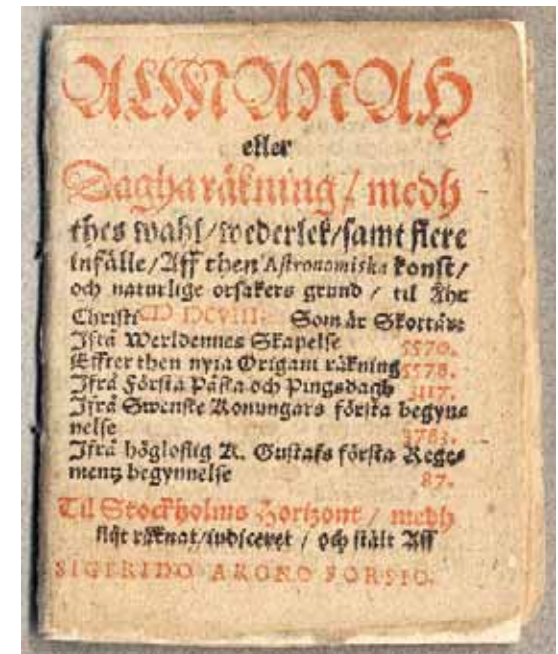 ALMANAH
eller
Dagharäkning / medh
thes wahl/wederlek/samt flere
infälle/Aff then Astronomiska konst/
och naturlige orsakers grund / til Åhr
Christi CIƆ IƆCVIII. Som är Skottåår
Ifrå Werldennes Skapelse 5570.
Effter then nyia Origani räkning 5578.
Ifrå Första Påska och Pingsdagh 3117.
Ifrå Swenske Konungars första begyn-
nelse 3763.
Ifrå högloflig K. Gustafs första Rege-
mentz begynnelse 87.
Til Stockholms Horizont / medh
flijt räknat/ / och stält Aff
SIGFRIDO ARONO FORSIO.